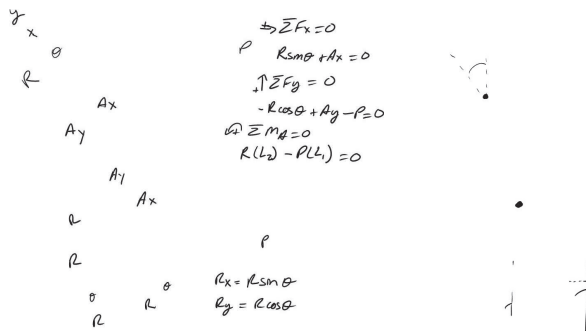 y
x
θ
R
Ax
Ay
Ay
Ax
R
R
θ
R
R
θ
P
→ΣFx = 0
Rsinθ + Ax = 0
+↑ΣFy = 0
-Rcosθ + Ay - P = 0
↶+ ΣMA = 0
R(L₂) - P(L₁) = 0
P
Rx = Rsinθ
Ry = Rcosθ